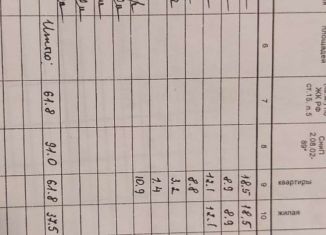 площадей
ЖК РФ
ст.15, п.5
СниП
2.08.02-
89*
квартиры
жилая
6 7 8 9 10
18.5 18.5
8.9 8.9
12.1 12.1
8.8
3.2
1.4
10.9
Итого: 61.8 91.0 61.8 37.5